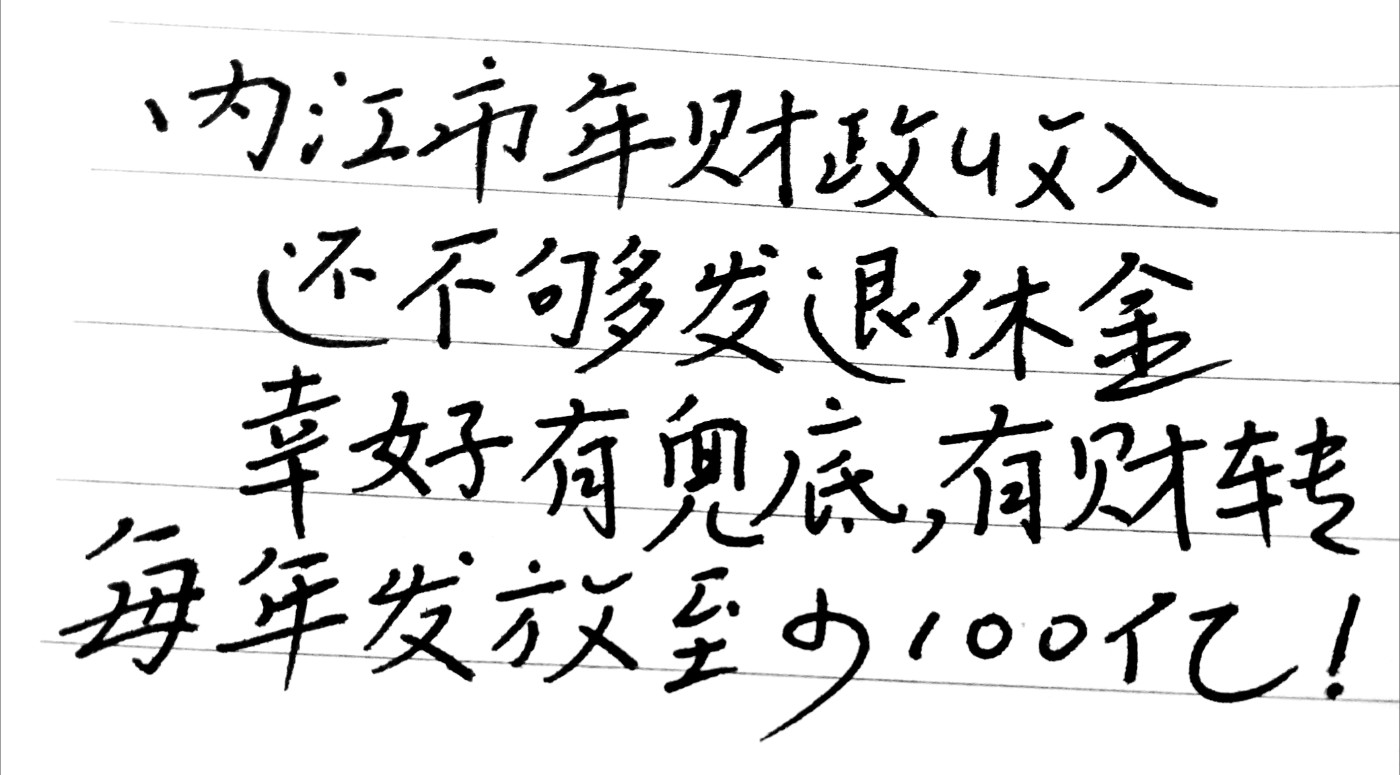 内江市年财政收入
还不够发退休金
幸好有兜底,有财转
每年发放至少100亿!